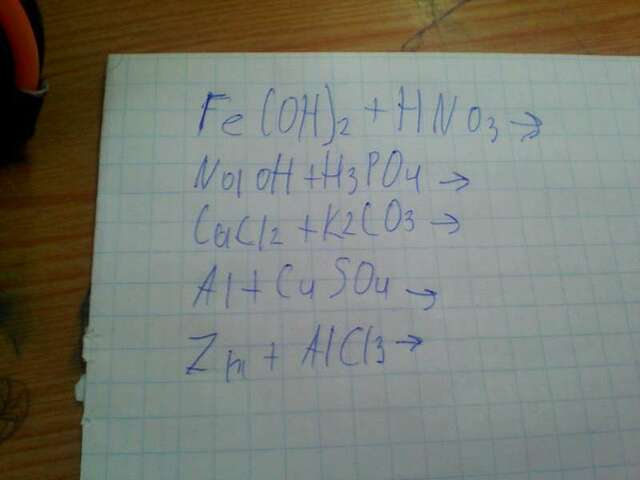 Fe(OH)2 + HNO3 →
NaOH + H3PO4 →
CaCl2 + K2CO3 →
Al + CuSO4 →
Zn + AlCl3 →